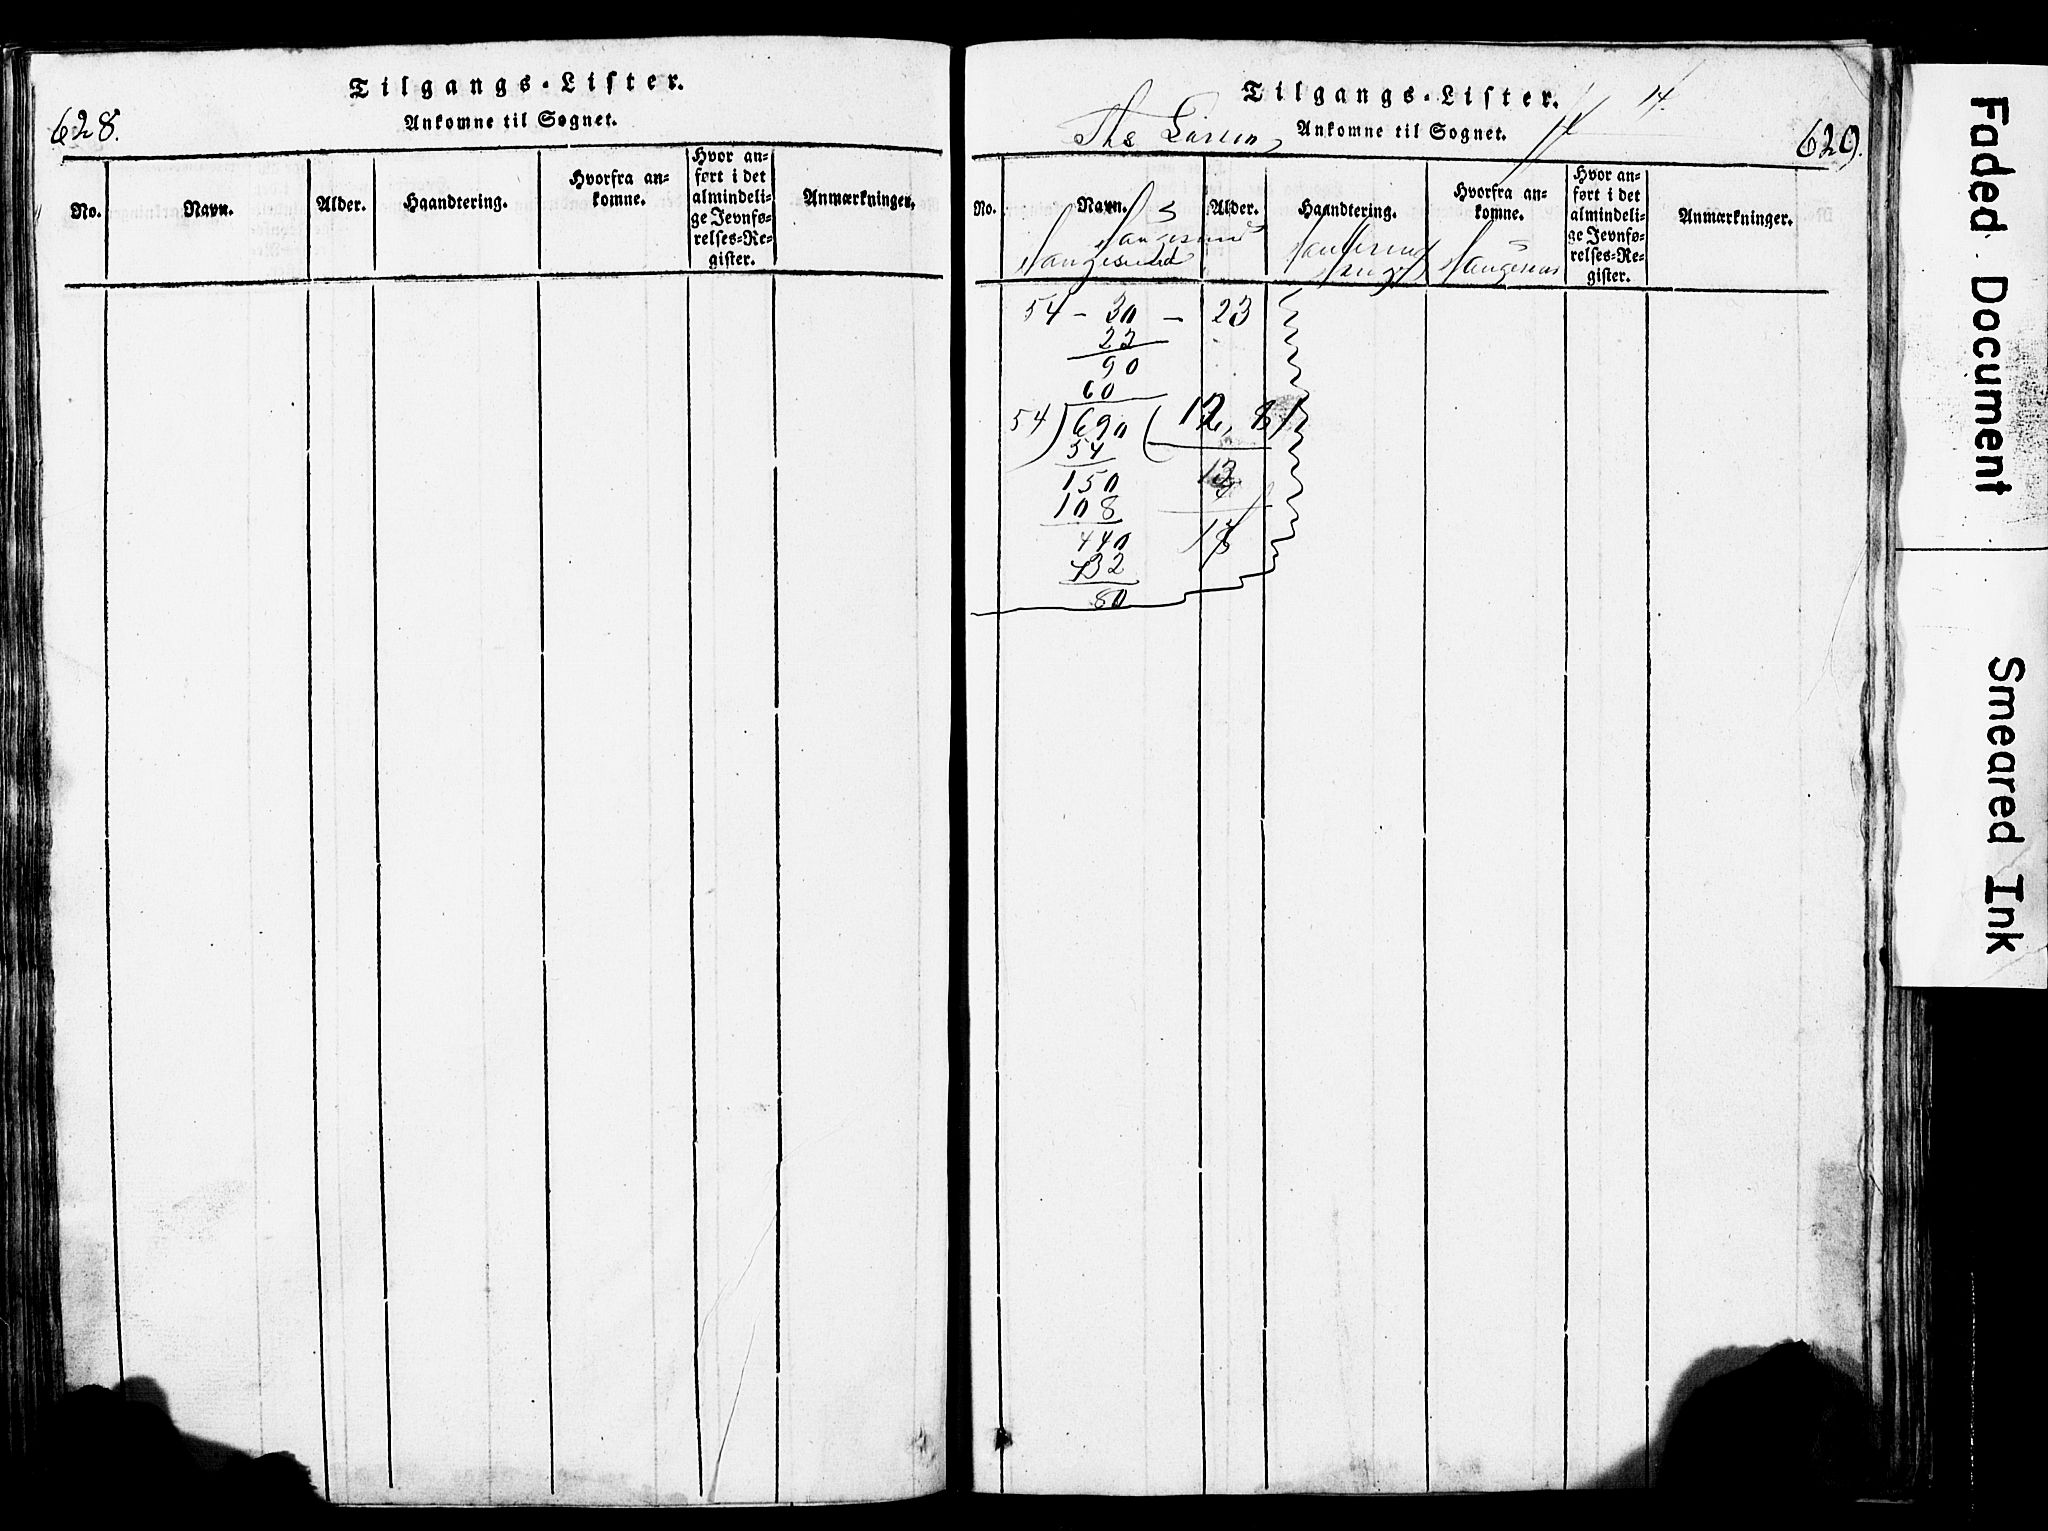 628.
Tilgangs-Lister.
Ankomne til Sognet.
No.
Navn.
Alder.
Haandtering.
Hvorfra an-
komne.
Hvor an-
ført i det
almindeli-
ge Jevnfø-
relses-Re-
gister.
Anmærkninger.
Tilgangs-Lister.
14.
Ths Larsen
Ankomne til Sognet.
629.
No.
Navn.
Alder.
Haandtering.
Hvorfra an-
komne.
Hvor an-
ført i det
almindeli-
ge Jevnfø-
relses-Re-
gister.
Anmærkninger.
54 - 30 - 23
23
90
60
54 ) 690 ( 12, 8
54
150
13
108
440
18
432
80
Faded Document
Smeared Ink